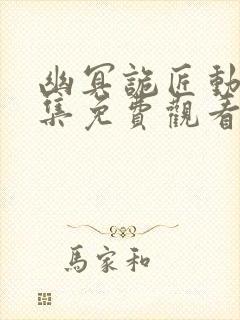 幽冥詭匠動
集免費觀看
馬家和